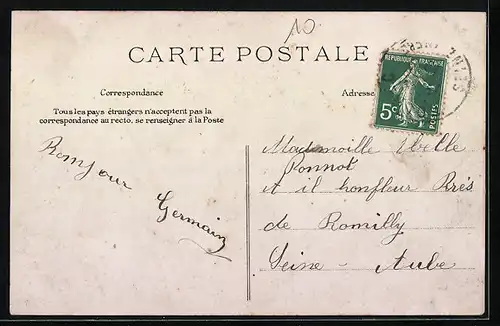 10
CARTE POSTALE
Correspondance
Adresse
Tous les pays étrangers n'acceptent pas la
correspondance au recto, se renseigner à la Poste
REPUBLIQUE FRANÇAISE
5c
POSTES
Bonjour
Germain
Mademoiselle
Ponnot
A il honfleur Prés
de Romilly
Seine - Aube